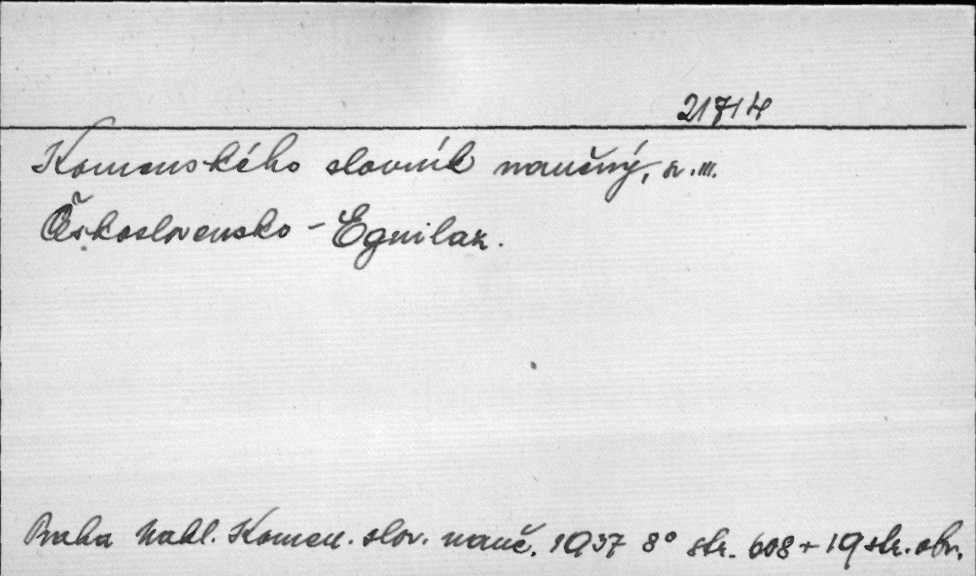 21714
Komenského slovník naučný, sv. III.
Československo - Eguilaz.
Praha Nakl. Komen. slov. nauč. 1937 8° str. 608 + 19 str. obr.